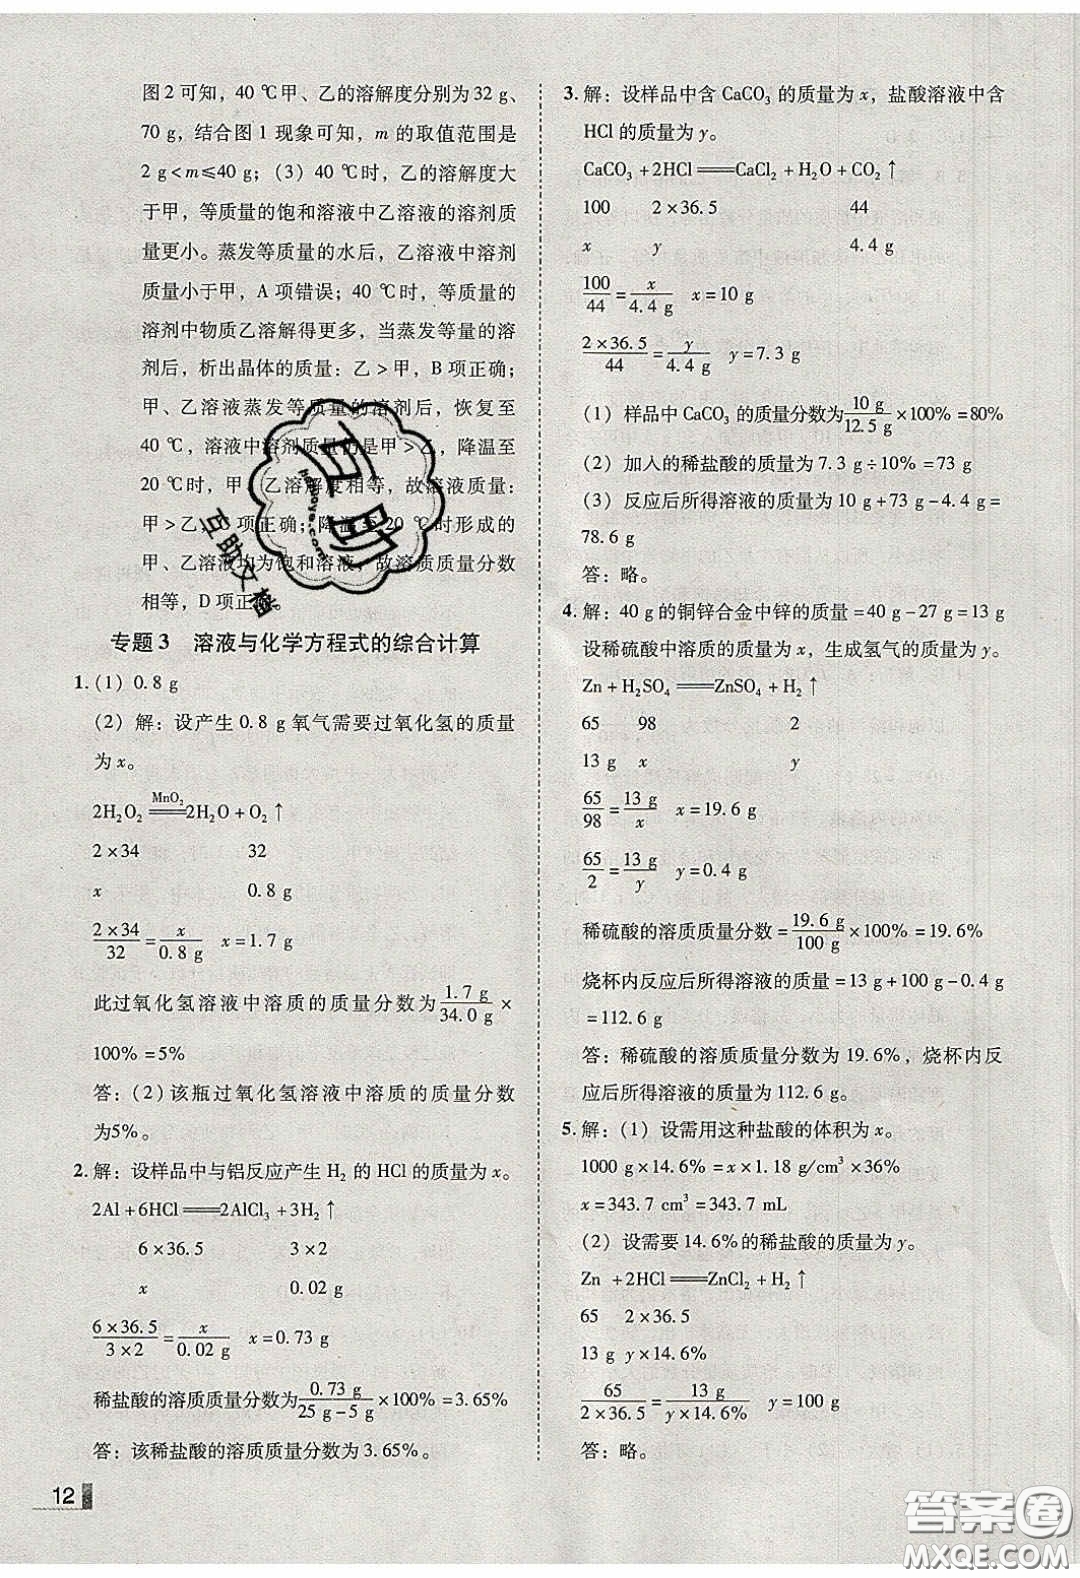 图2可知，40 ℃甲、乙的溶解度分别为32 g、
70 g，结合图1现象可知，m的取值范围是
2 g<m≤40 g；(3) 40 ℃时，乙的溶解度大
于甲，等质量的饱和溶液中乙溶液的溶剂质
量更小。蒸发等质量的水后，乙溶液中溶剂
质量小于甲，A项错误；40 ℃时，等质量的
溶剂中物质乙溶解得更多，当蒸发等量的水
溶剂后，析出晶体的质量：乙>甲，B项正确；
甲、乙溶液蒸发等质量的溶剂后，恢复至
40 ℃，溶液中溶剂质量仍是甲>乙，降温至
20 ℃时，甲、乙溶解度相等，故溶液质量：
甲>乙，C项正确；降温至20 ℃时形成的
甲、乙溶液均为饱和溶液，故溶质质量分数
相等，D项正确。
专题3 溶液与化学方程式的综合计算
1. (1) 0.8 g
(2) 解：设产生0.8 g氧气需要过氧化氢的质量
为x。
2H₂O₂ =MnO₂= 2H₂O+O₂↑
2×34 32
x 0.8 g
2×34/32 = x/0.8 g x=1.7 g
此过氧化氢溶液中溶质的质量分数为 1.7 g/34.0 g ×
100%=5%
答：(2) 该瓶过氧化氢溶液中溶质的质量分数
为5%。
2. 解：设样品中与铝反应产生H₂的HCl的质量为x。
2Al+6HCl══2AlCl₃+3H₂↑
6×36.5 3×2
x 0.02 g
6×36.5/3×2 = x/0.02 g x=0.73 g
稀盐酸的溶质质量分数为 0.73 g/25 g-5 g ×100%=3.65%
答：该稀盐酸的溶质质量分数为3.65%。
12
3. 解：设样品中含CaCO₃的质量为x，盐酸溶液中含
HCl的质量为y。
CaCO₃+2HCl══CaCl₂+H₂O+CO₂↑
100 2×36.5 44
x y 4.4 g
100/44 = x/4.4 g x=10 g
2×36.5/44 = y/4.4 g y=7.3 g
(1) 样品中CaCO₃的质量分数为 10 g/12.5 g ×100%=80%
(2) 加入的稀盐酸的质量为7.3 g÷10%=73 g
(3) 反应后所得溶液的质量为10 g+73 g-4.4 g=
78.6 g
答：略。
4. 解：40 g的铜锌合金中锌的质量=40 g-27 g=13 g
设稀硫酸中溶质的质量为x，生成氢气的质量为y。
Zn+H₂SO₄══ZnSO₄+H₂↑
65 98 2
13 g x y
65/98 = 13 g/x x=19.6 g
65/2 = 13 g/y y=0.4 g
稀硫酸的溶质质量分数= 19.6 g/100 g ×100%=19.6%
烧杯内反应后所得溶液的质量=13 g+100 g-0.4 g
=112.6 g
答：稀硫酸的溶质质量分数为19.6%，烧杯内反
应后所得溶液的质量为112.6 g。
5. 解：(1) 设需用这种盐酸的体积为x。
1000 g×14.6%=x×1.18 g/cm³×36%
x=343.7 cm³=343.7 mL
(2) 设需要14.6%的稀盐酸的质量为y。
Zn+2HCl══ZnCl₂+H₂↑
65 2×36.5
13 g y×14.6%
65/2×36.5 = 13 g/y×14.6% y=100 g
答：略。
互助
互助文档
答案圈
MXQE.COM